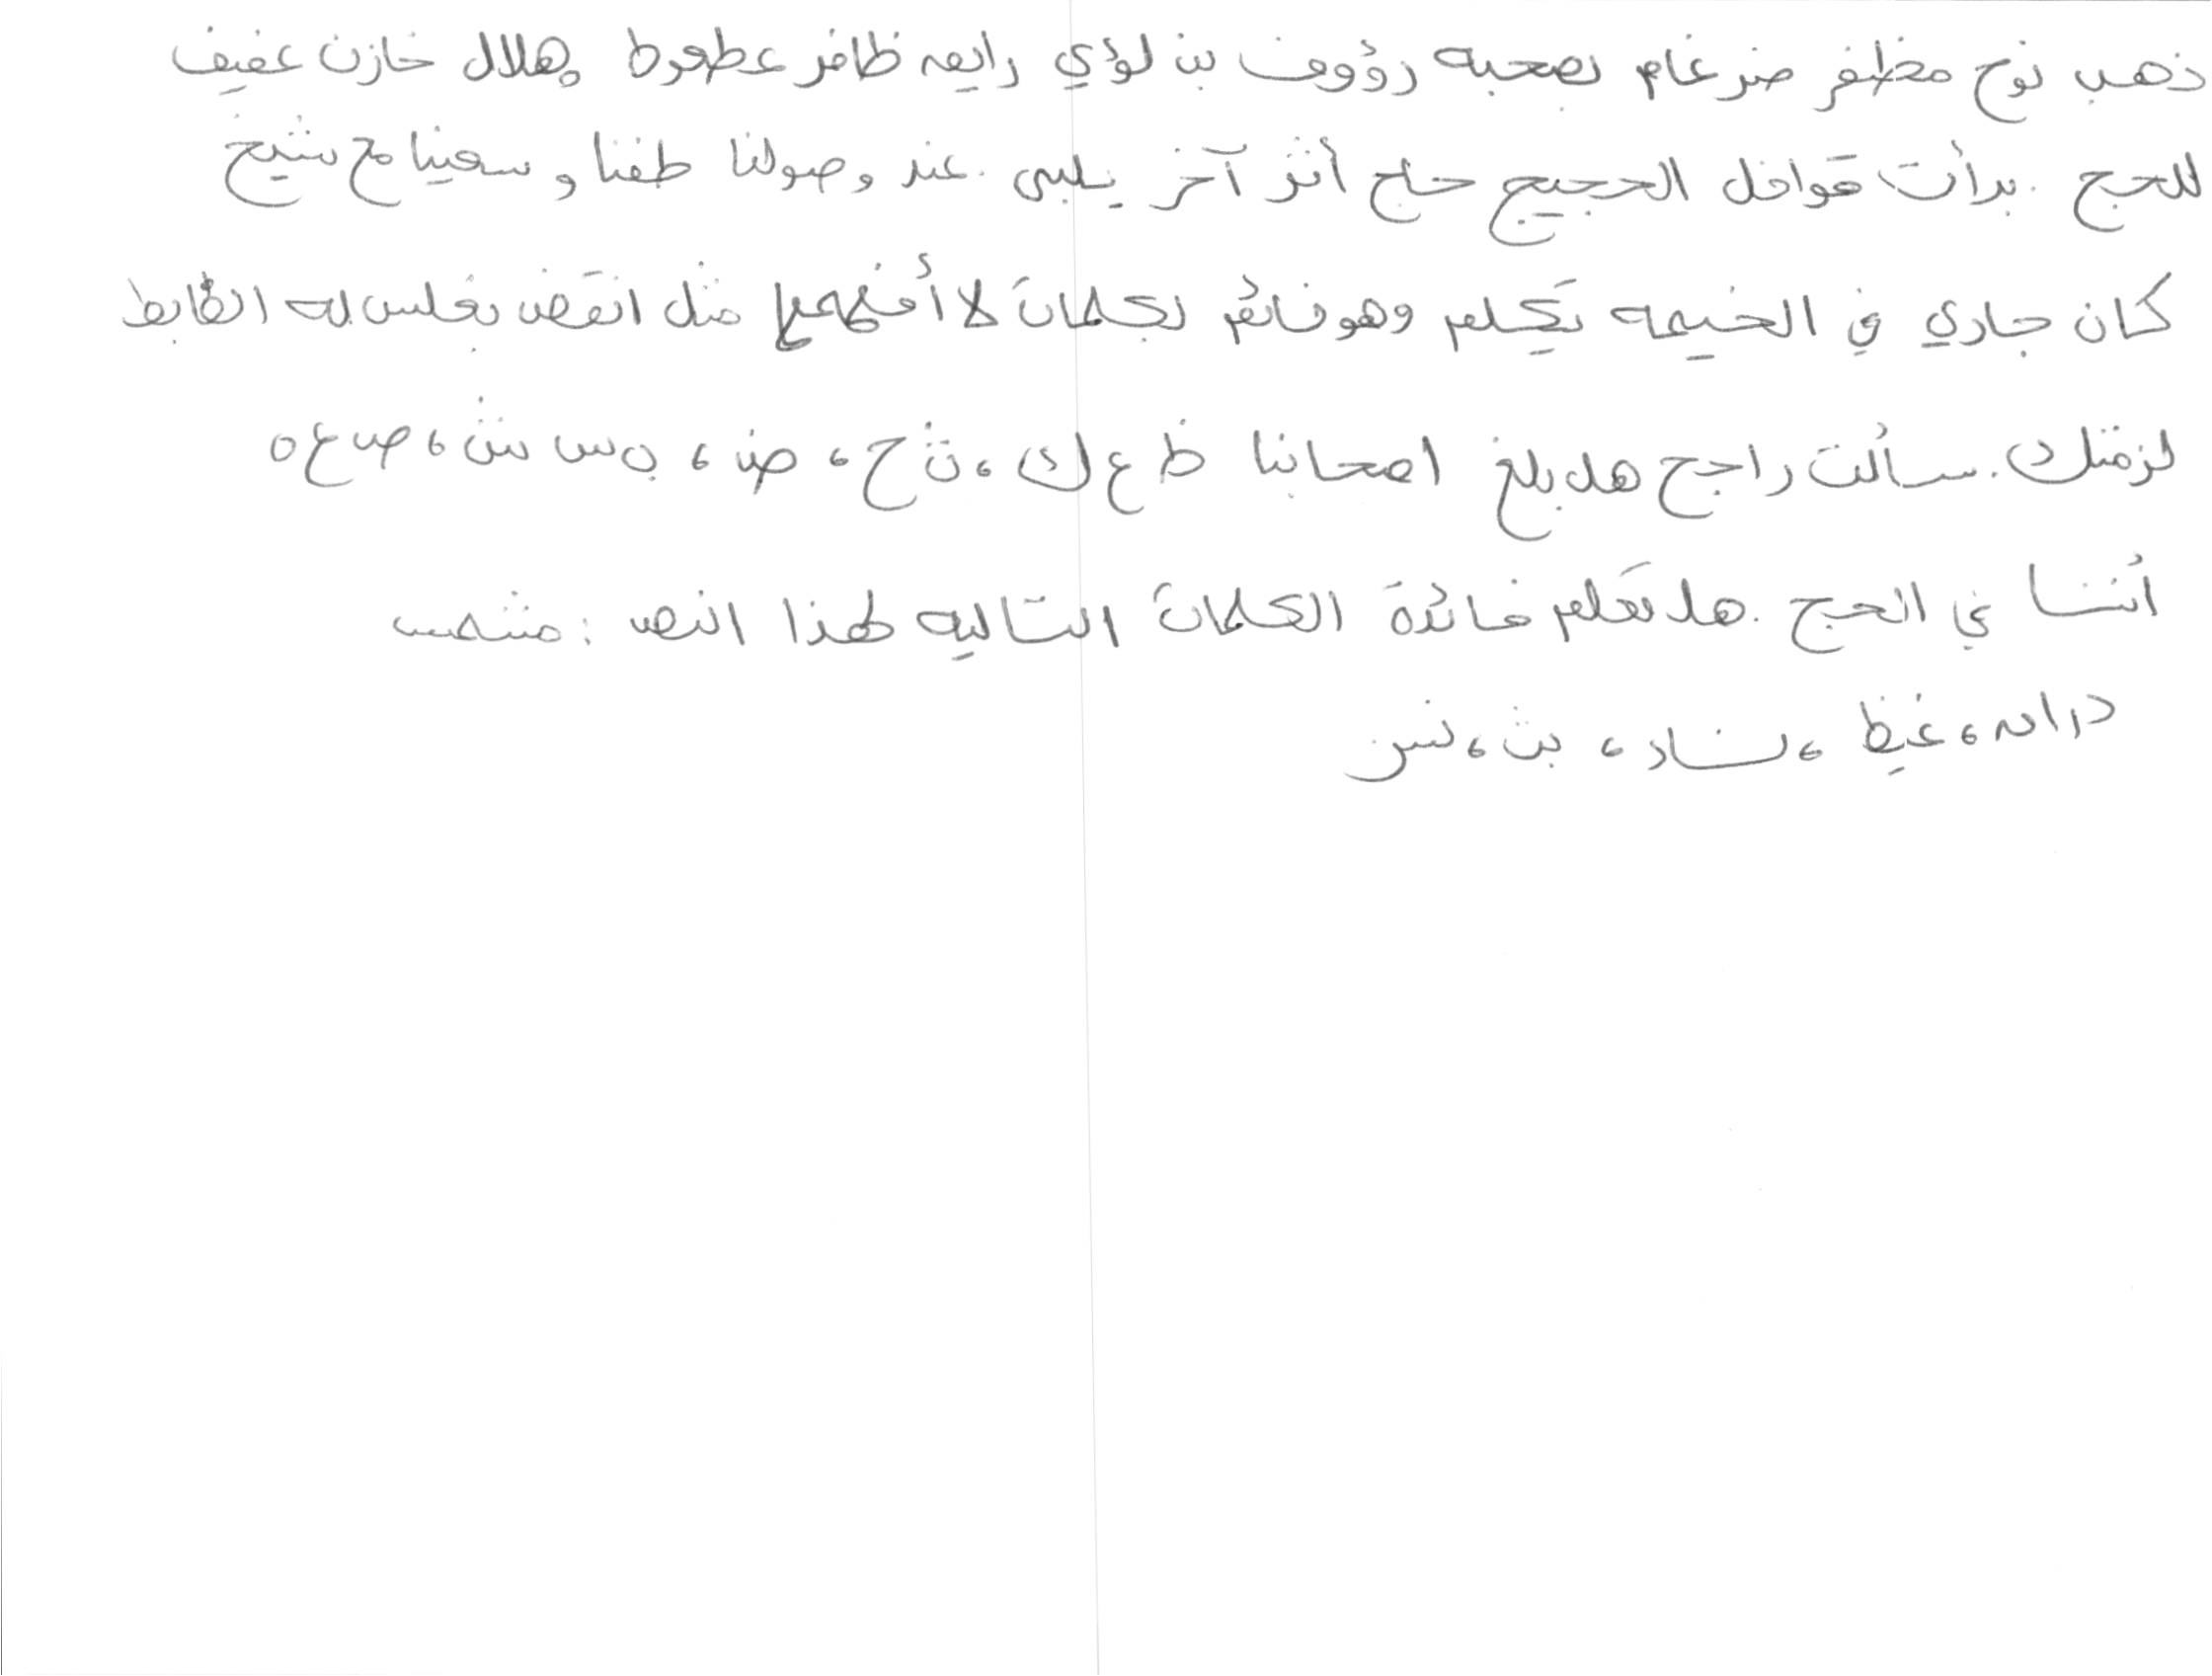 ذهب نوح مظفر ضرغام بصحبه رؤوف بن لؤي رايعه ظافر عطعوط بهلال خازن عفيف
للحج . بدأت قوافل الحجيج حاج أثر آخر يلبي . عند وصولنا طفنا وسعينا مع شيخ
كان جاري في الخيمه يتكلم وهو نائم بكلمات لا أفهمها مثل انقض بغلس له الظابط
لزمتك . سألت راجح هل بلغ اصحابنا ظ ع ك ، ث ح ، ض ، ب س ش ، ص ع ه
أننا في الحج . هل تعلم فائدة الكلمات التاليه لهذا النص : منتهب
دراسه ، غيظ ، نساد ، بث ، نس